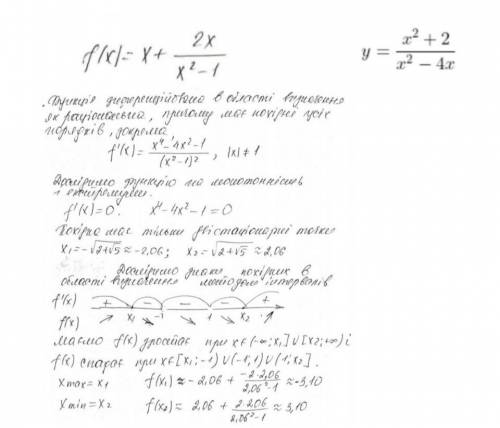 f(x) = x + 2x/(x² - 1)
y = (x² + 2)/(x² - 4x)
Функція диференційовна в області визначення
як раціональна, причому має похідні усіх
порядків, зокрема
f'(x) = (x⁴ - 4x² - 1)/(x² - 1)², |x| ≠ 1
Дослідимо функцію на монотонність
і екстремуми.
f'(x) = 0. x⁴ - 4x² - 1 = 0
Похідна має тільки дві стаціонарні точки
x₁ = -√(2+√5) ≈ -2,06; x₂ = √(2+√5) ≈ 2,06
Дослідимо знаки похідних в
області визначення методом інтервалів
f'(x) + - - - +
f(x) x₁ -1 1 x₂
Маємо f(x) зростає при x ∈ (-∞; x₁] ∪ [x₂; +∞) і
f(x) спадає при x ∈ [x₁; -1) ∪ (-1; 1) ∪ (1; x₂].
xmax = x₁ f(x₁) ≈ -2,06 + (-2·2,06)/(2,06² - 1) ≈ -3,10
xmin = x₂ f(x₂) ≈ 2,06 + (2·2,06)/(2,06² - 1) ≈ 3,10